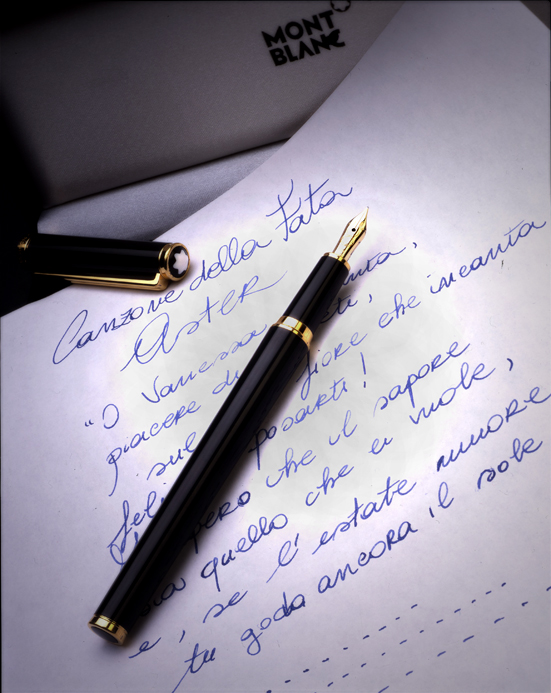 MONT
BLANC
Canzone della Fata
Aster
"O Vanessa
piacere di fiore che incanta
sul posarti!
che il sapore
sia quello che ci vuole,
e, se l'estate muore
tu goda ancora il sole